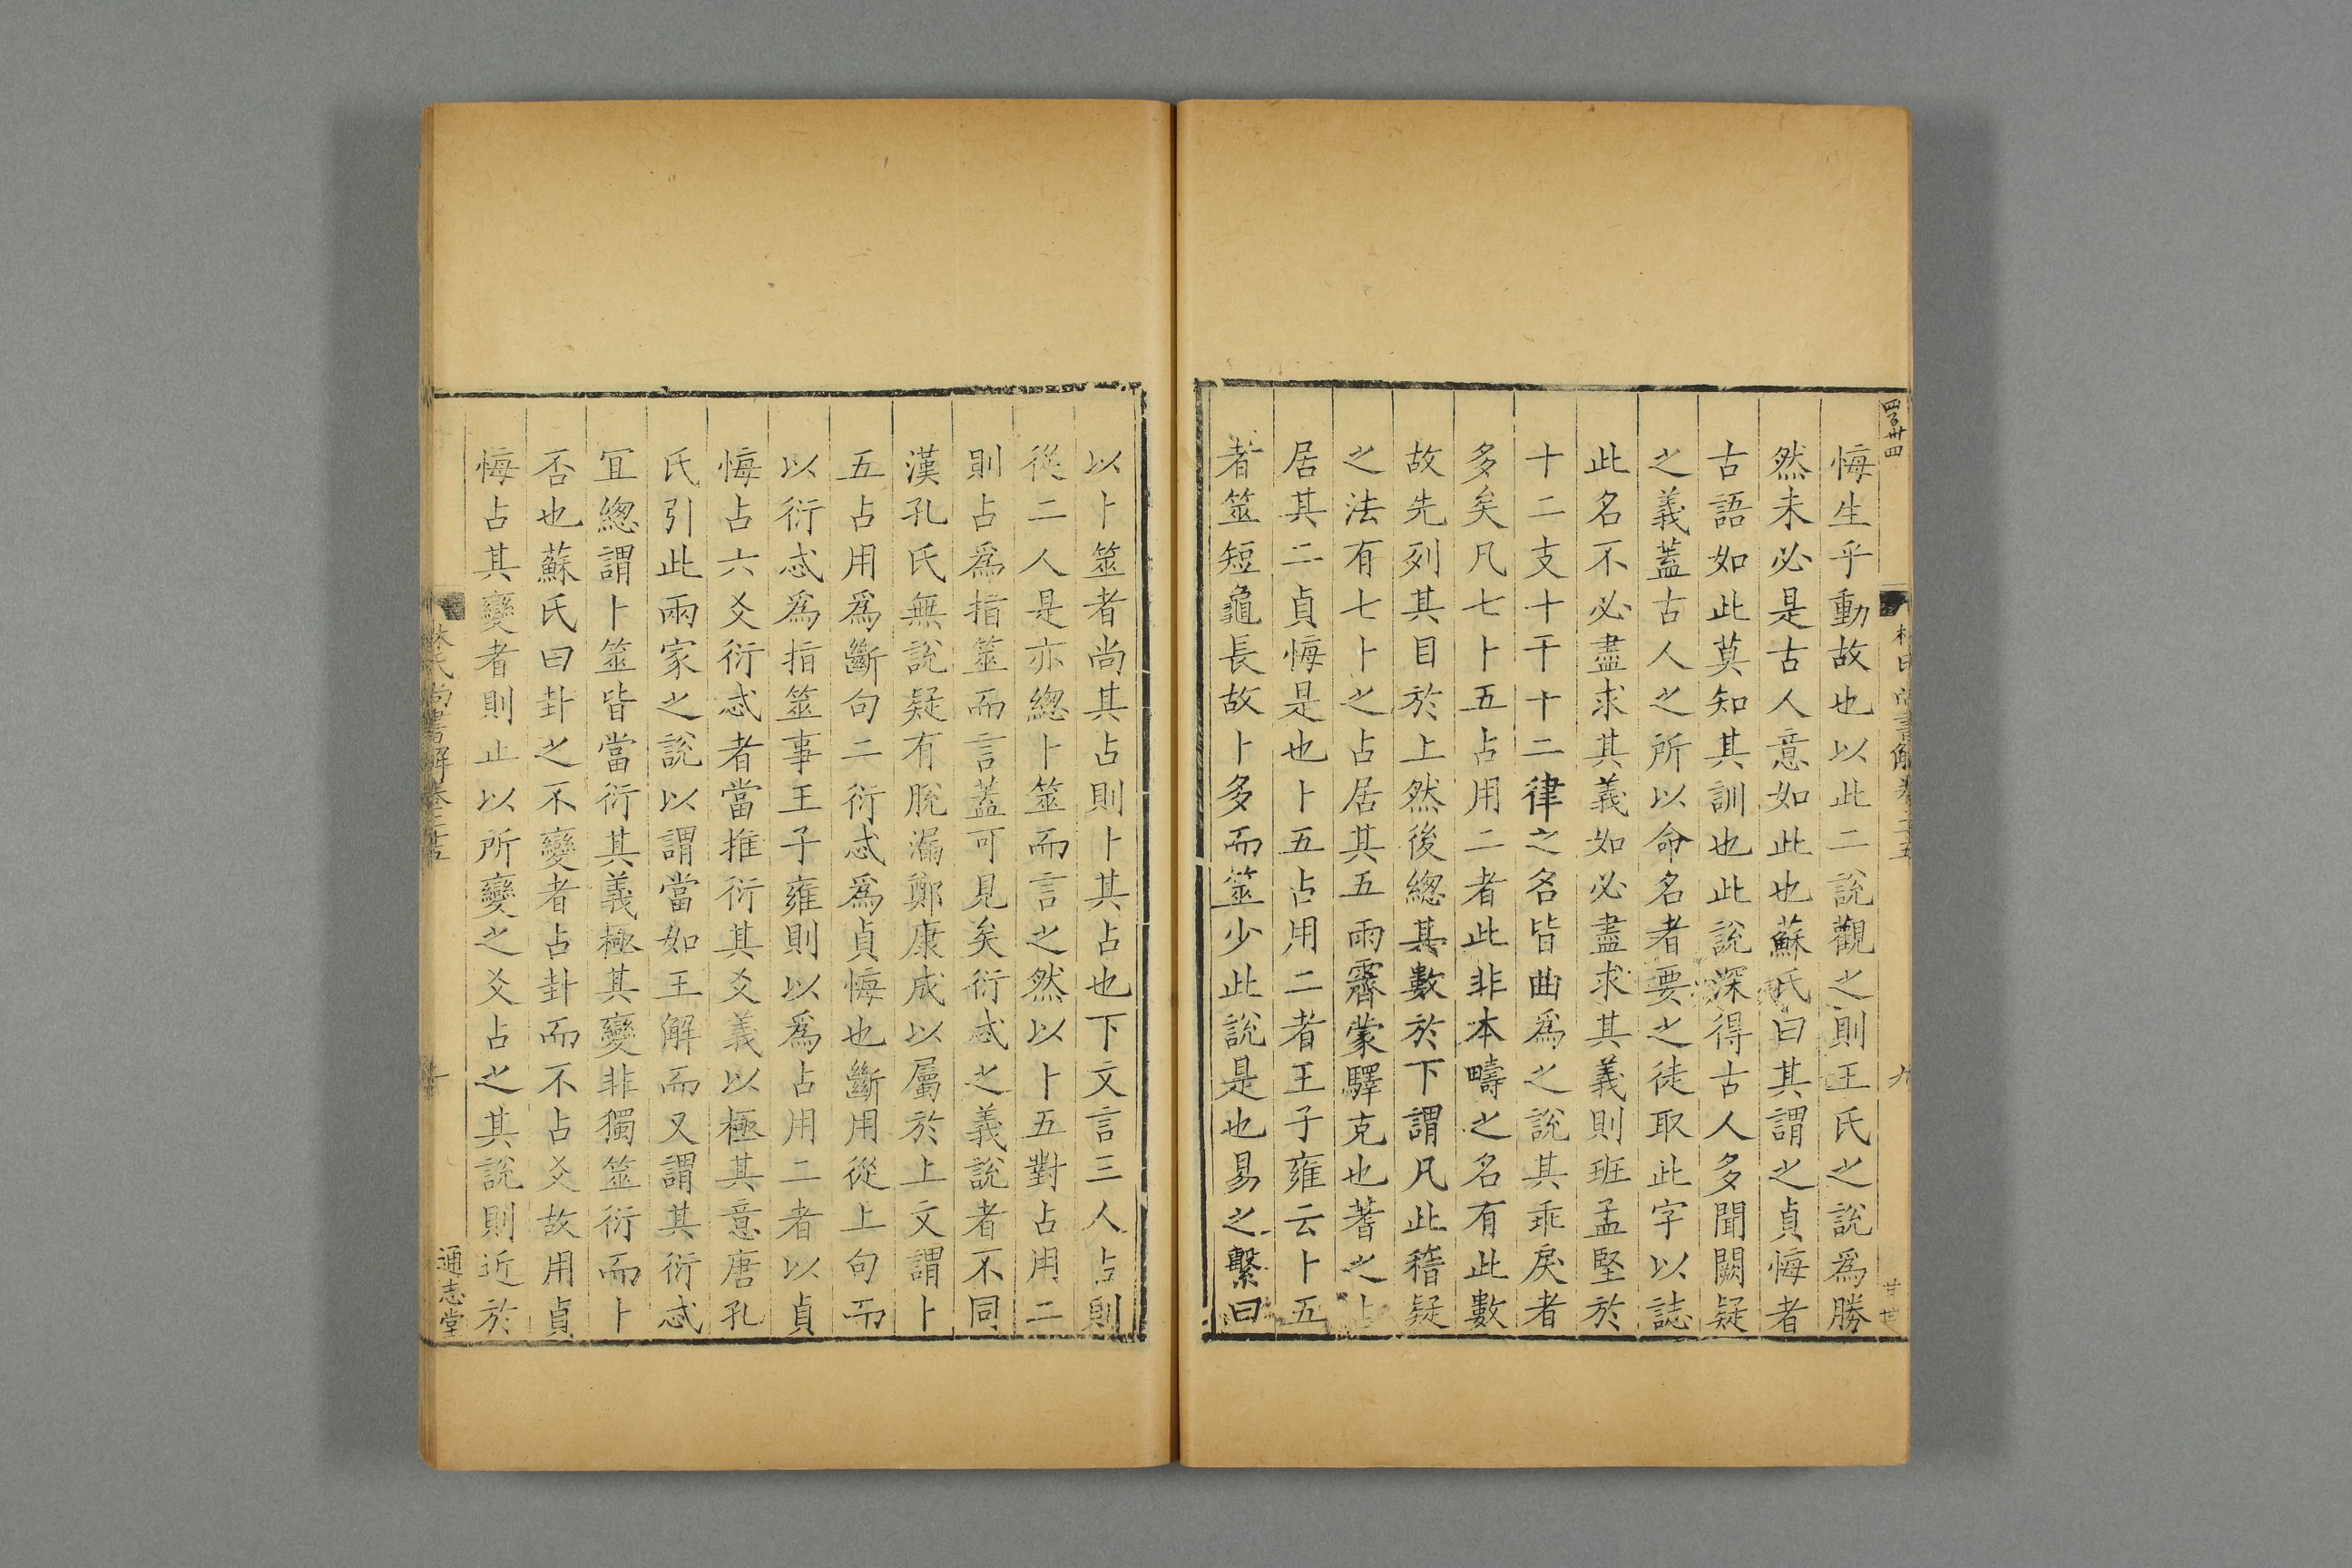 悔生乎動故也以此二說觀之則王氏之說爲勝
然未必是古人意如此也蘇氏曰其謂之貞悔者
古語如此莫知其訓也此說深得古人多聞闕疑
之義蓋古人之所以命名者要之徒取此字以誌
此名不必盡求其義如必盡求其義則班孟堅於
十二支十干十二律之名皆曲爲之說其乖戾者
多矣凡七卜五占用二者此非本疇之名有此數
故先列其目於上然後總其數於下謂凡此稽疑
之法有七卜之占居其五雨霽蒙驛克也蓍之占
居其二貞悔是也卜五占用二者王子雍云卜五
者筮短龜長故卜多而筮少此說是也易之繫曰
以卜筮者尚其占則卜其占也下文言三人占則
從二人是亦緫卜筮而言之然以卜五對占用二
則占爲指筮而言蓋可見矣衍忒之義說者不同
漢孔氏無說疑有脫漏鄭康成以屬於上文謂卜
五占用爲斷句二衍忒爲貞悔也斷用從上句而
以衍忒爲指筮事王子雍則以爲占用二者以貞
悔占六爻衍忒者當推衍其爻義以極其意唐孔
氏引此兩家之說以謂當如王解而又謂其衍忒
宜緫謂卜筮皆當衍其義極其變非獨筮衍而卜
否也蘇氏曰卦之不變者占卦而不占爻故用貞
悔占其變者則止以所變之爻占之其說則近於
林氏尚書解卷二十五
通志堂